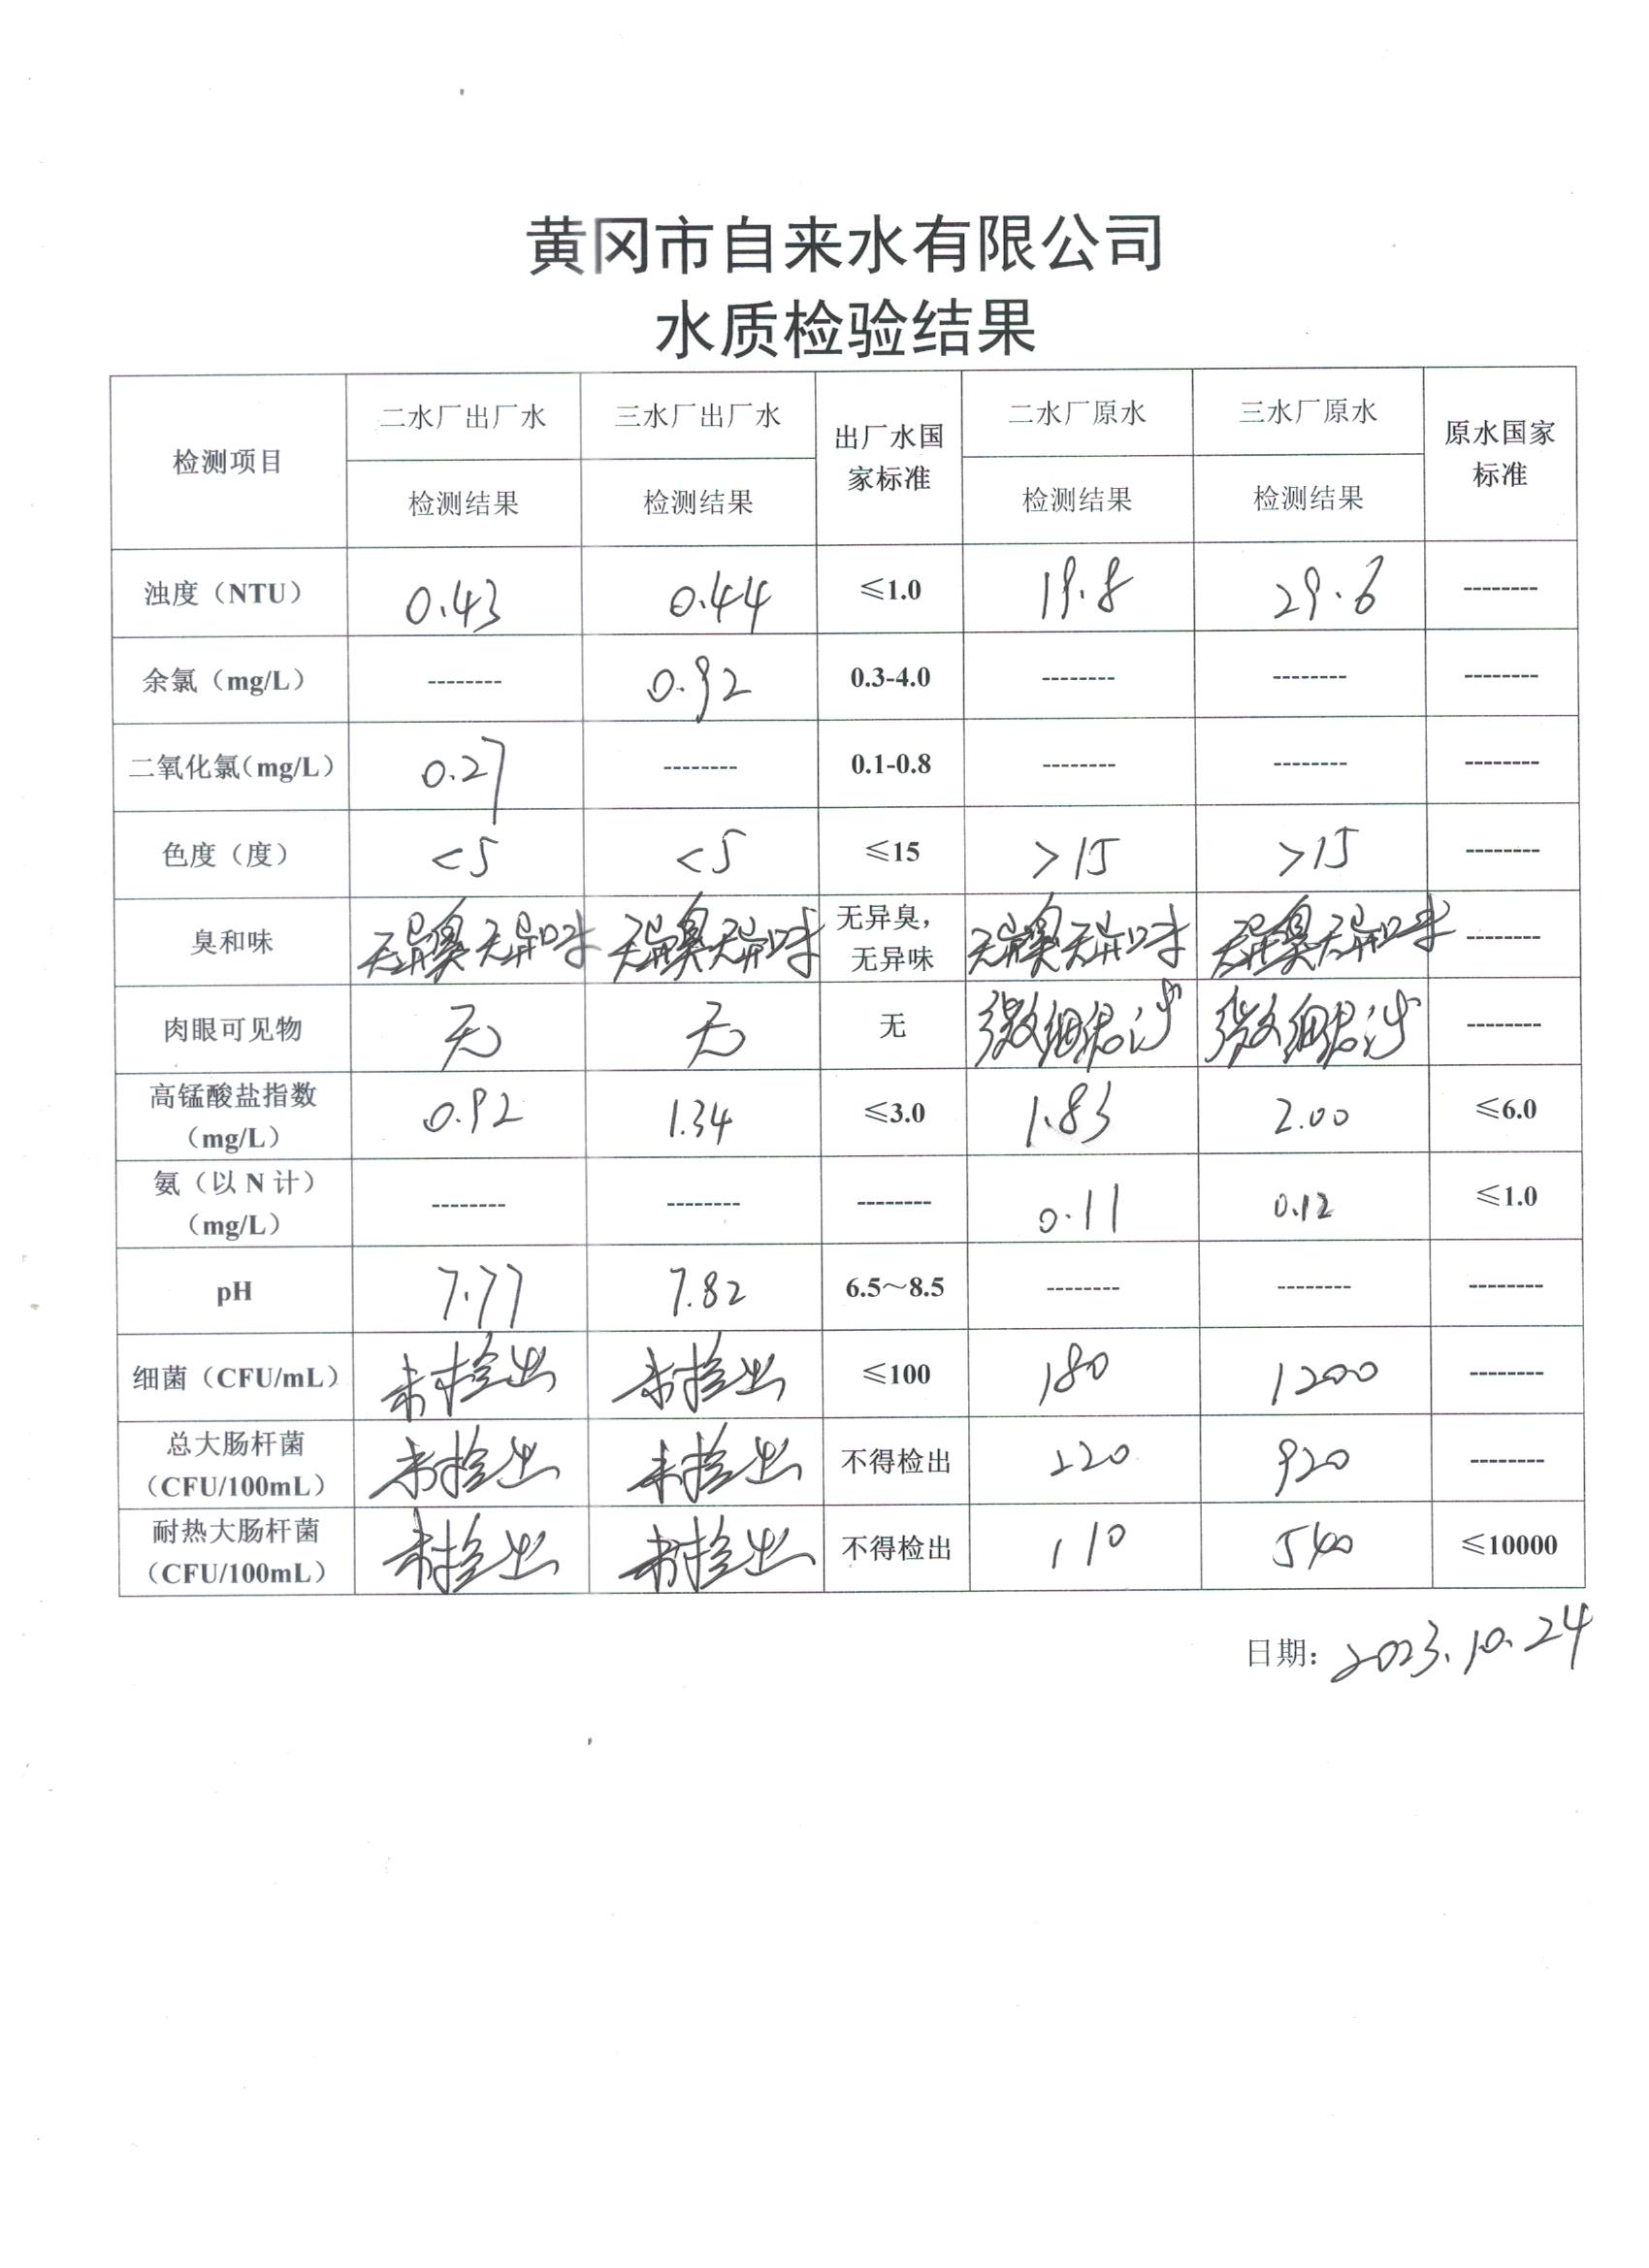 黄冈市自来水有限公司
水质检验结果
检测项目 二水厂出厂水 三水厂出厂水 出厂水国家标准 二水厂原水 三水厂原水 原水国家标准
检测结果 检测结果 检测结果 检测结果
浊度（NTU） 0.43 0.44 ≤1.0 19.8 29.6 --------
余氯（mg/L） -------- 0.92 0.3-4.0 -------- -------- --------
二氧化氯（mg/L） 0.27 -------- 0.1-0.8 -------- -------- --------
色度（度） <5 <5 ≤15 >15 >15 --------
臭和味 无异臭无异味 无异臭无异味 无异臭，无异味 无异臭无异味 无异臭无异味 --------
肉眼可见物 无 无 无 微细泥沙 微细泥沙 --------
高锰酸盐指数（mg/L） 0.92 1.34 ≤3.0 1.83 2.00 ≤6.0
氨（以 N 计）（mg/L） -------- -------- -------- 0.11 0.12 ≤1.0
pH 7.77 7.82 6.5～8.5 -------- -------- --------
细菌（CFU/mL） 未检出 未检出 ≤100 180 1200 --------
总大肠杆菌（CFU/100mL） 未检出 未检出 不得检出 220 920 --------
耐热大肠杆菌（CFU/100mL） 未检出 未检出 不得检出 110 540 ≤10000
日期：2023.10.24